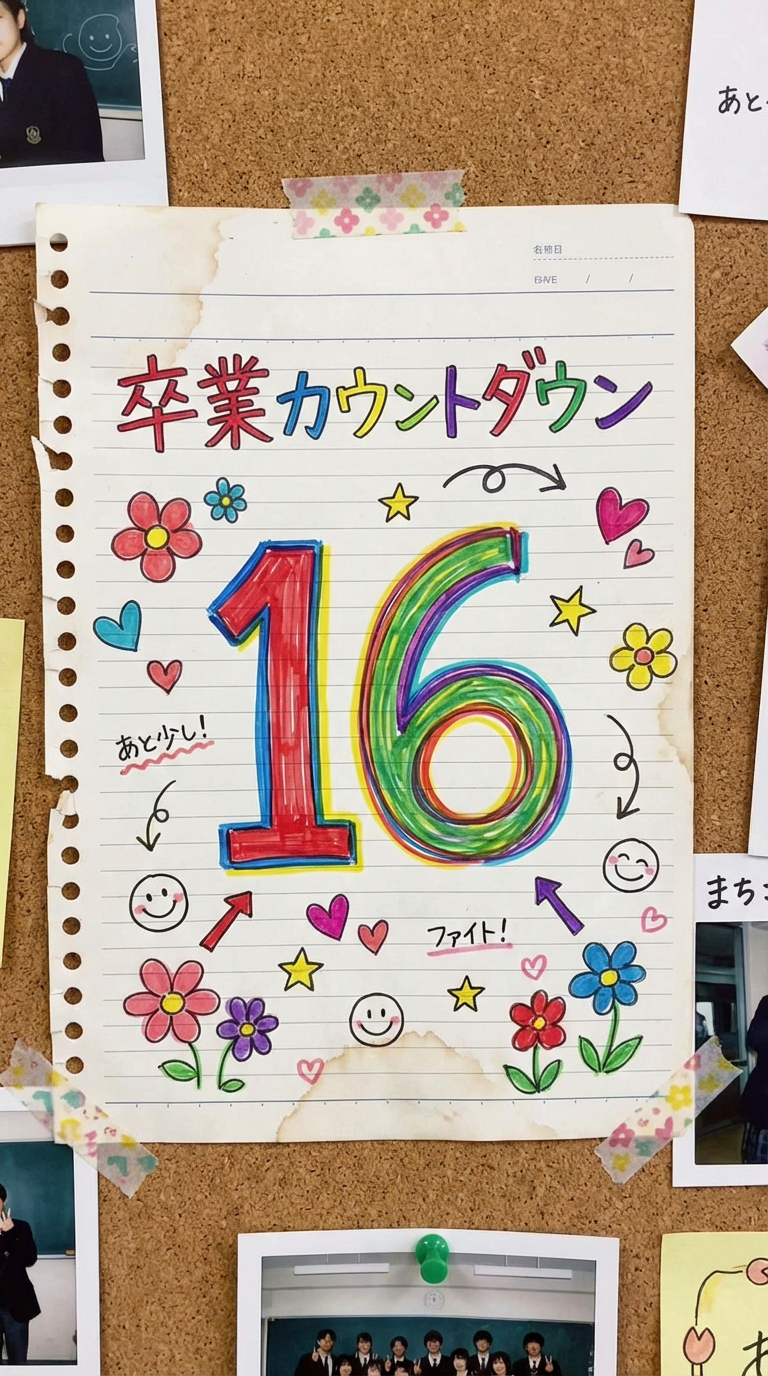 あと
名前日
/ /
卒業カウントダウン
16
あと少し!
ファイト!
まち
あ